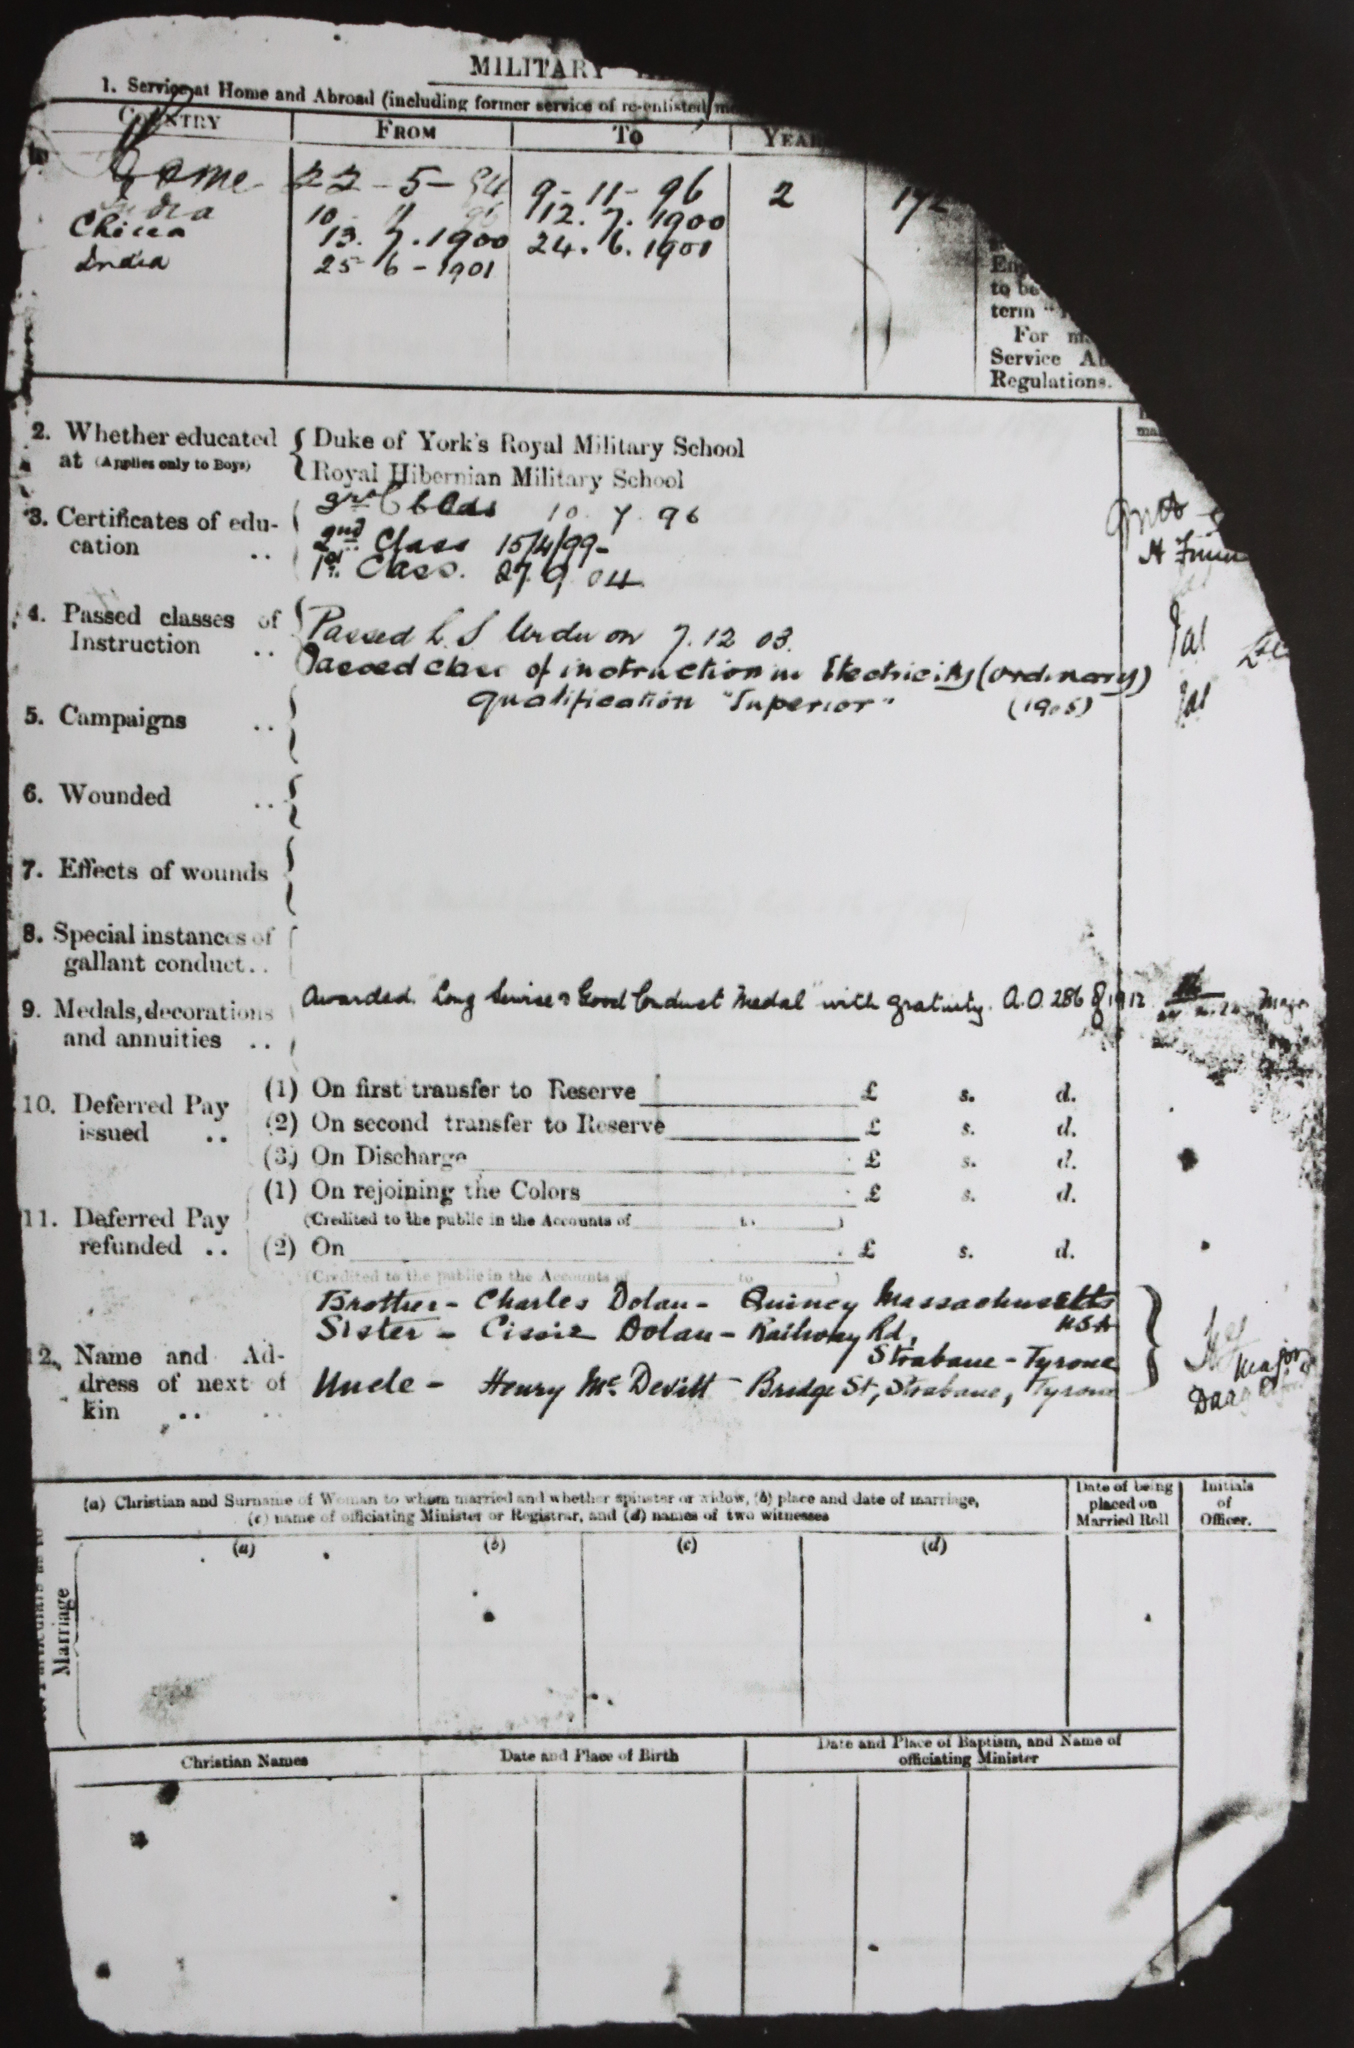 MILITARY
1. Service at Home and Abroad (including former service of re-enlisted
COUNTRY FROM TO YEAR
Home 22-5-94 9-11-96 2 172
India 10-11-96 12.7.1900
China 13.7.1900 24.6.1901
India 25-6-1901
to be
term "
For
Service
Regulations.
2. Whether educated at (Applies only to Boys) { Duke of York's Royal Military School
Royal Hibernian Military School
3. Certificates of education .. 3rd Class 10 7 96
2nd Class 15/4/99-
1st Class. 27 9 04
4. Passed classes of Instruction .. { Passed L. S Urdu on 7.12 03.
Passed class of instruction in Electricity (ordinary)
qualification "Superior" (1905)
5. Campaigns .. {
6. Wounded .. {
7. Effects of wounds {
8. Special instances of gallant conduct.. {
9. Medals, decorations and annuities .. Awarded. "Long Service & Good Conduct Medal" with gratuity. A.O. 286 of 1912. Major
10. Deferred Pay issued .. (1) On first transfer to Reserve £ s. d.
(2) On second transfer to Reserve £ s. d.
(3) On Discharge £ s. d.
11. Deferred Pay refunded .. (1) On rejoining the Colors £ s. d.
(Credited to the public in the Accounts of to )
(2) On £ s. d.
(Credited to the public in the Accounts of to )
12. Name and Address of next of kin .. Brother - Charles Dolan - Quincy Massachusetts
USA
Sister - Cissie Dolan - Railway Rd,
Strabane - Tyrone
Uncle - Henry Mc Devitt - Bridge St, Strabane, Tyrone
Major
(a) Christian and Surname of Woman to whom married and whether spinster or widow, (b) place and date of marriage,
(c) name of officiating Minister or Registrar, and (d) names of two witnesses
Date of being placed on Married Roll
Initials of Officer.
(a) (b) (c) (d)
Marriage
Christian Names Date and Place of Birth Date and Place of Baptism, and Name of officiating Minister